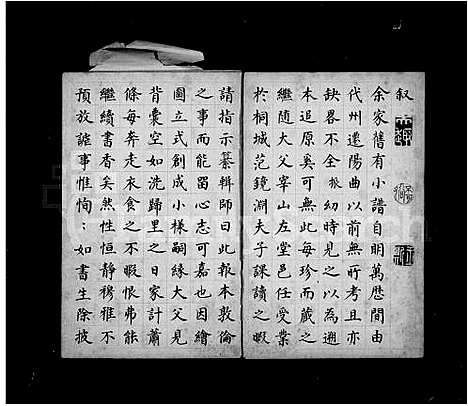 叙
余家舊有小譜自明萬厯間由
代州遷陽曲以前無所考且亦
缺畧不全挀幼時見之以為遡
本追原奚可無此每珍而藏之
繼隨大父宰山左堂邑任受業
於桐城范鏡淵夫子課讀之暇
請指示纂輯師曰此報本敦倫
之事而能畱心志可嘉也因繪
圖立式創成小樣嗣緣大父見
背囊空如洗歸里之日家計蕭
條每奔走衣食之不暇恨弗能
繼續書香矣然性恒靜穆雅不
預放誕事惟恂恂如書生除披